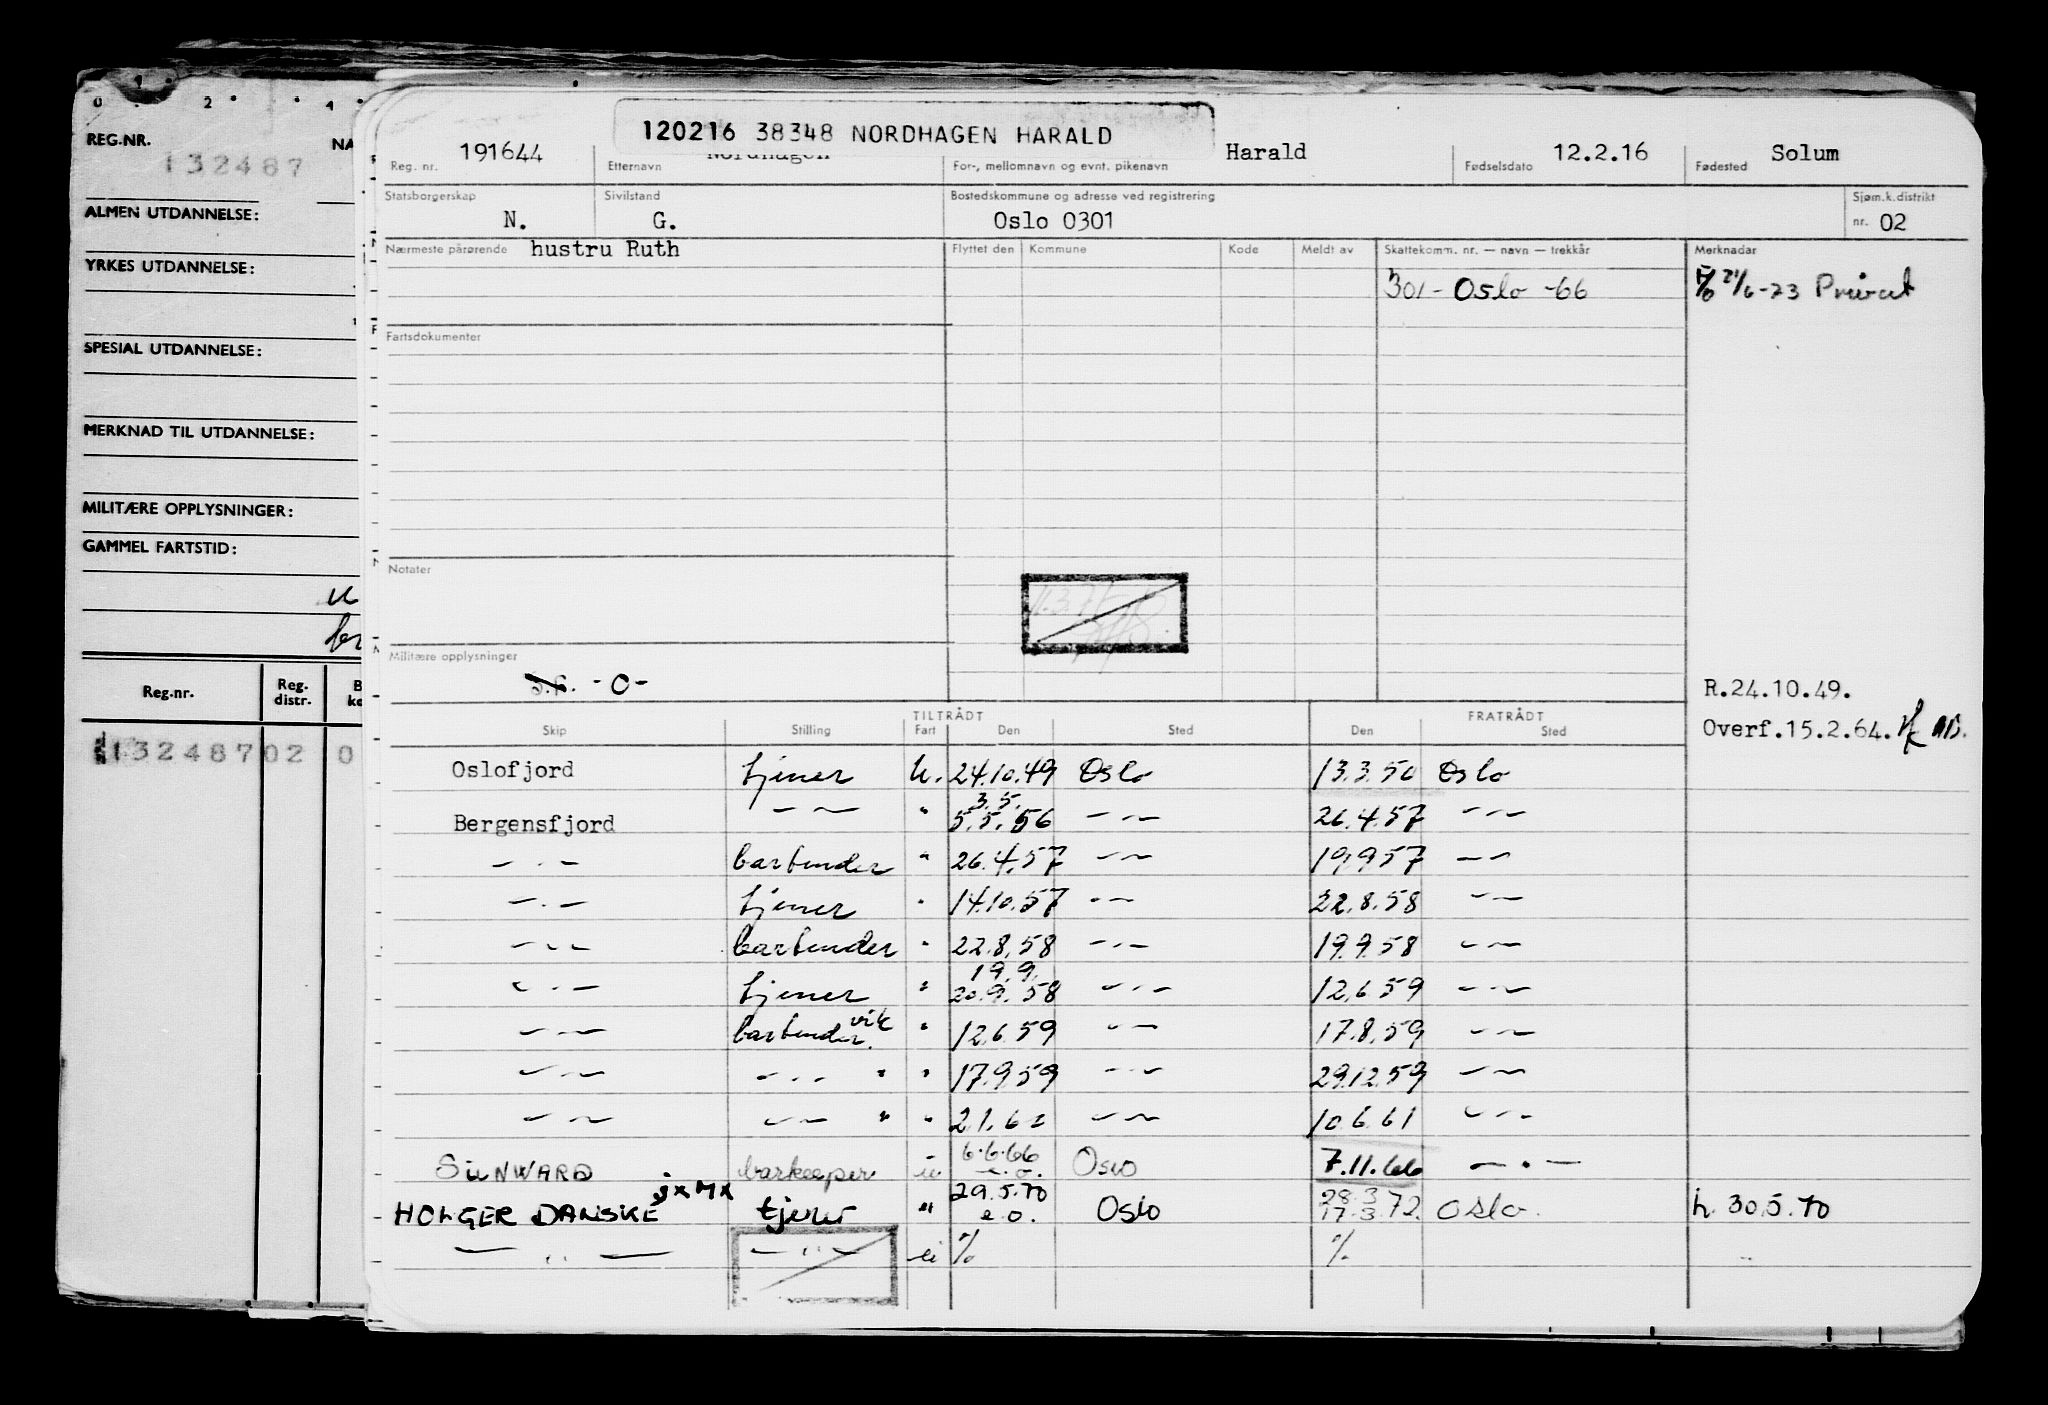 0 2 4
REG.NR. NA
132487
ALMEN UTDANNELSE:
YRKES UTDANNELSE:
SPESIAL UTDANNELSE:
MERKNAD TIL UTDANNELSE:
MILITÆRE OPPLYSNINGER:
GAMMEL FARTSTID:
Reg.nr. Reg. distr. B ke
132487 02 0
120216 38348 NORDHAGEN HARALD
191644 Nordhagen Harald 12.2.16 Solum
Reg. nr. Etternavn For-, mellomnavn og evnt. pikenavn Fødselsdato Fødested
Statsborgerskap Sivilstand Bostedskommune og adresse ved registrering Sjøm.k.distrikt
N. G. Oslo 0301 nr. 02
Nærmeste pårørende hustru Ruth Flyttet den Kommune Kode Meldt av Skattekomm. nr. — navn — trekkår Merknadar
301 - Oslo -66 21/6-73 Privat
Fartsdokumenter
Notater
Militære opplysninger
-0-
R.24.10.49.
Overf.15.2.64.
TILTRÅDT FRATRÅDT
Skip Stilling Fart Den Sted Den Sted
Oslofjord tjener U. 24.10.49 Oslo 13.3.50 Oslo
3.5.
Bergensfjord — 〃 — " 5.5.56 — 〃 — 26.4.57 — 〃 —
— 〃 — bartender " 26.4.57 — 〃 — 19.9.57 — 〃 —
— 〃 — tjener " 14.10.57 — 〃 — 22.8.58 — 〃 —
— 〃 — bartender " 22.8.58 — 〃 — 19.9.58 — 〃 —
19.9.
— 〃 — tjener " 20.9.58 — 〃 — 12.6.59 — 〃 —
— 〃 — bartender vik. " 12.6.59 — 〃 — 17.8.59 — 〃 —
— 〃 — — 〃 — " " 17.9.59 — 〃 — 29.12.59 — 〃 —
— 〃 — — 〃 — " " 2.1.60 — 〃 — 10.6.61 — 〃 —
SUNWARD barkeeper u 6.6.66 Oslo 7.11.66 — 〃 —
e.o.
jxMx 29.5.70 28.3
HOLGER DANSKE tjener " e.o. Oslo 17.3.72 Oslo. h. 30.5.70
— 〃 — — 〃 — u % %